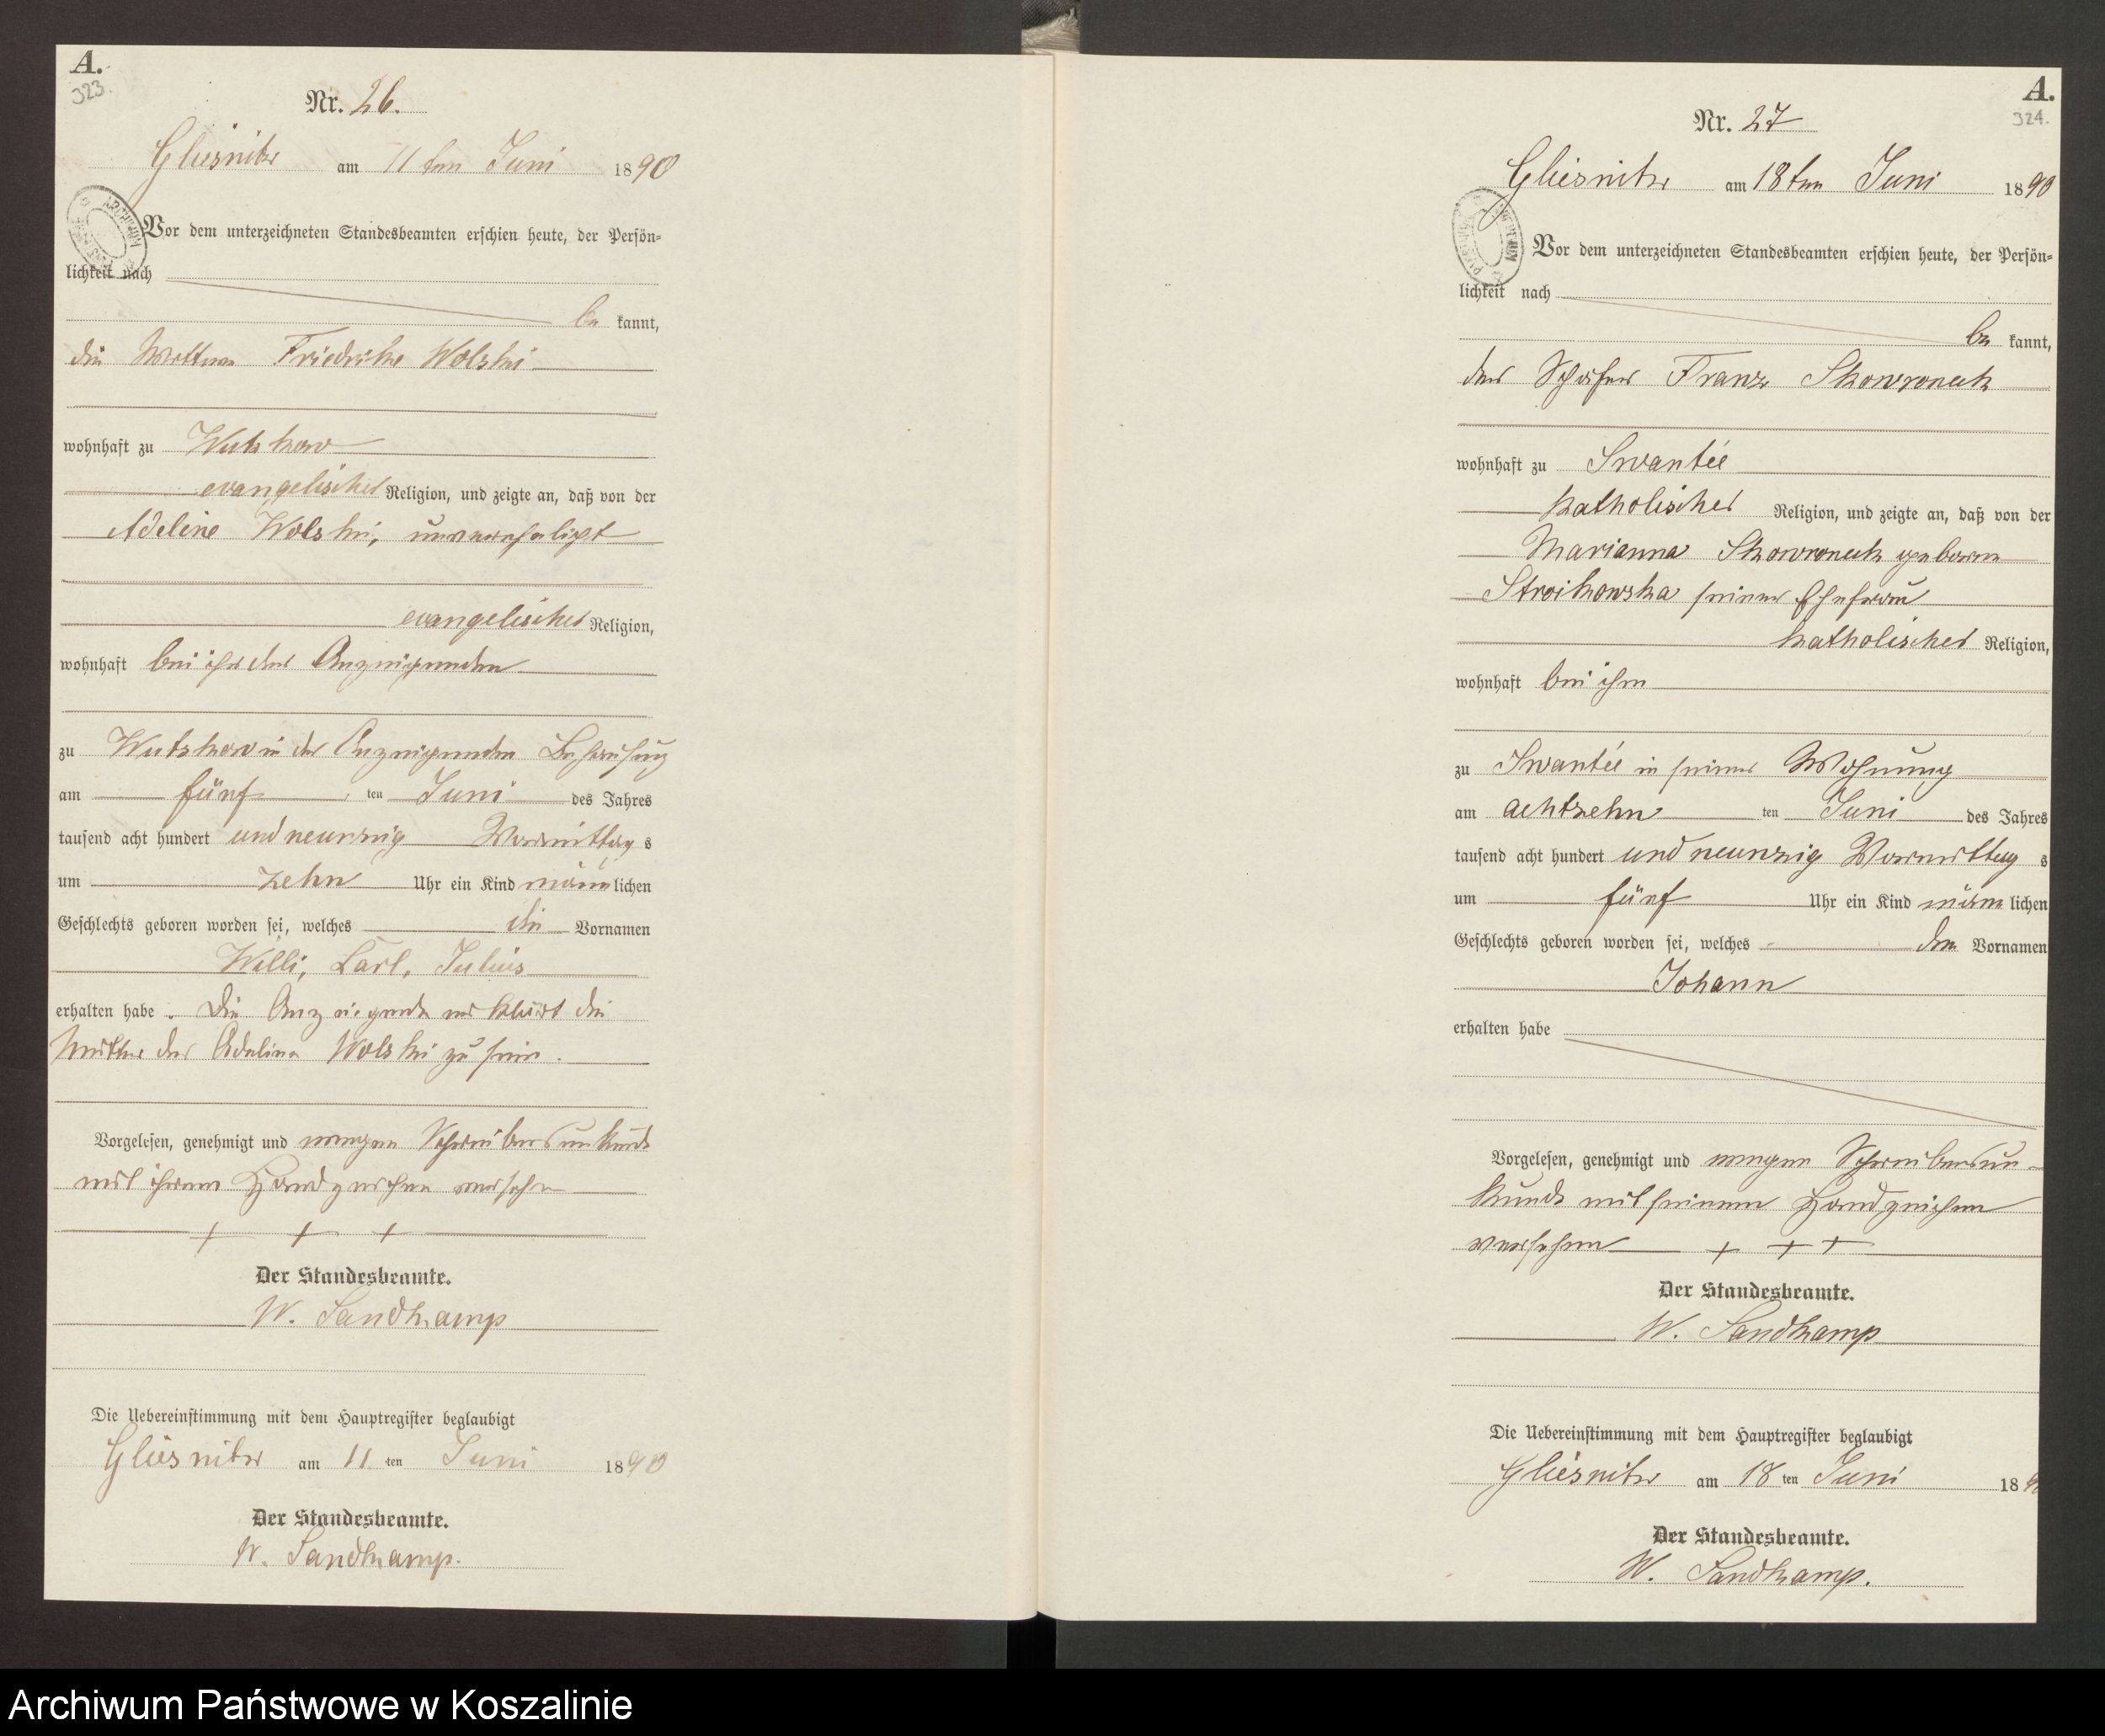 A.
323.
Nr. 26.
Gliesnitz am 11ten Juni 1890
Vor dem unterzeichneten Standesbeamten erschien heute, der Persön-
lichkeit nach
be kannt,
die Wittwe Friedrike Wolski
wohnhaft zu Wutzkow
evangelischer Religion, und zeigte an, daß von der
Adeline Wolski, unverehelicht
evangelischer Religion,
wohnhaft bei ihr der Anzeigenden
zu Wutzkow in der Anzeigenden Behausung
am fünf ten Juni des Jahres
tausend acht hundert und neunzig Vormittag s
um zehn Uhr ein Kind männlichen
Geschlechts geboren worden sei, welches die Vornamen
Willi, Carl, Julius
erhalten habe. Die Anzeigende erklärt die
Mutter der Adeline Wolski zu sein.
Vorgelesen, genehmigt und wegen Schreibensunkunde
mit ihrem Handzeichen versehen
+ + +
Der Standesbeamte.
W. Sandkamp
Die Uebereinstimmung mit dem Hauptregister beglaubigt
Gliesnitz am 11 ten Juni 1890
Der Standesbeamte.
W. Sandkamp.
A.
324.
Nr. 27
Gliesnitz am 18ten Juni 1890
Vor dem unterzeichneten Standesbeamten erschien heute, der Persön-
lichkeit nach
be kannt,
der Schäfer Franz Skowroneck
wohnhaft zu Swantée
katholischer Religion, und zeigte an, daß von der
Marianna Skowroneck geboren
Stroikowska seiner Ehefrau
katholischer Religion,
wohnhaft bei ihm
zu Swantée in seiner Wohnung
am achtzehn ten Juni des Jahres
tausend acht hundert und neunzig Vormittag s
um fünf Uhr ein Kind männlichen
Geschlechts geboren worden sei, welches den Vornamen
Johann
erhalten habe
Vorgelesen, genehmigt und wegen Schreibensun-
kunde mit seinem Handzeichen
versehen + + +
Der Standesbeamte.
W. Sandkamp
Die Uebereinstimmung mit dem Hauptregister beglaubigt
Gliesnitz am 18 ten Juni 189
Der Standesbeamte.
W. Sandkamp.
Archiwum Państwowe w Koszalinie